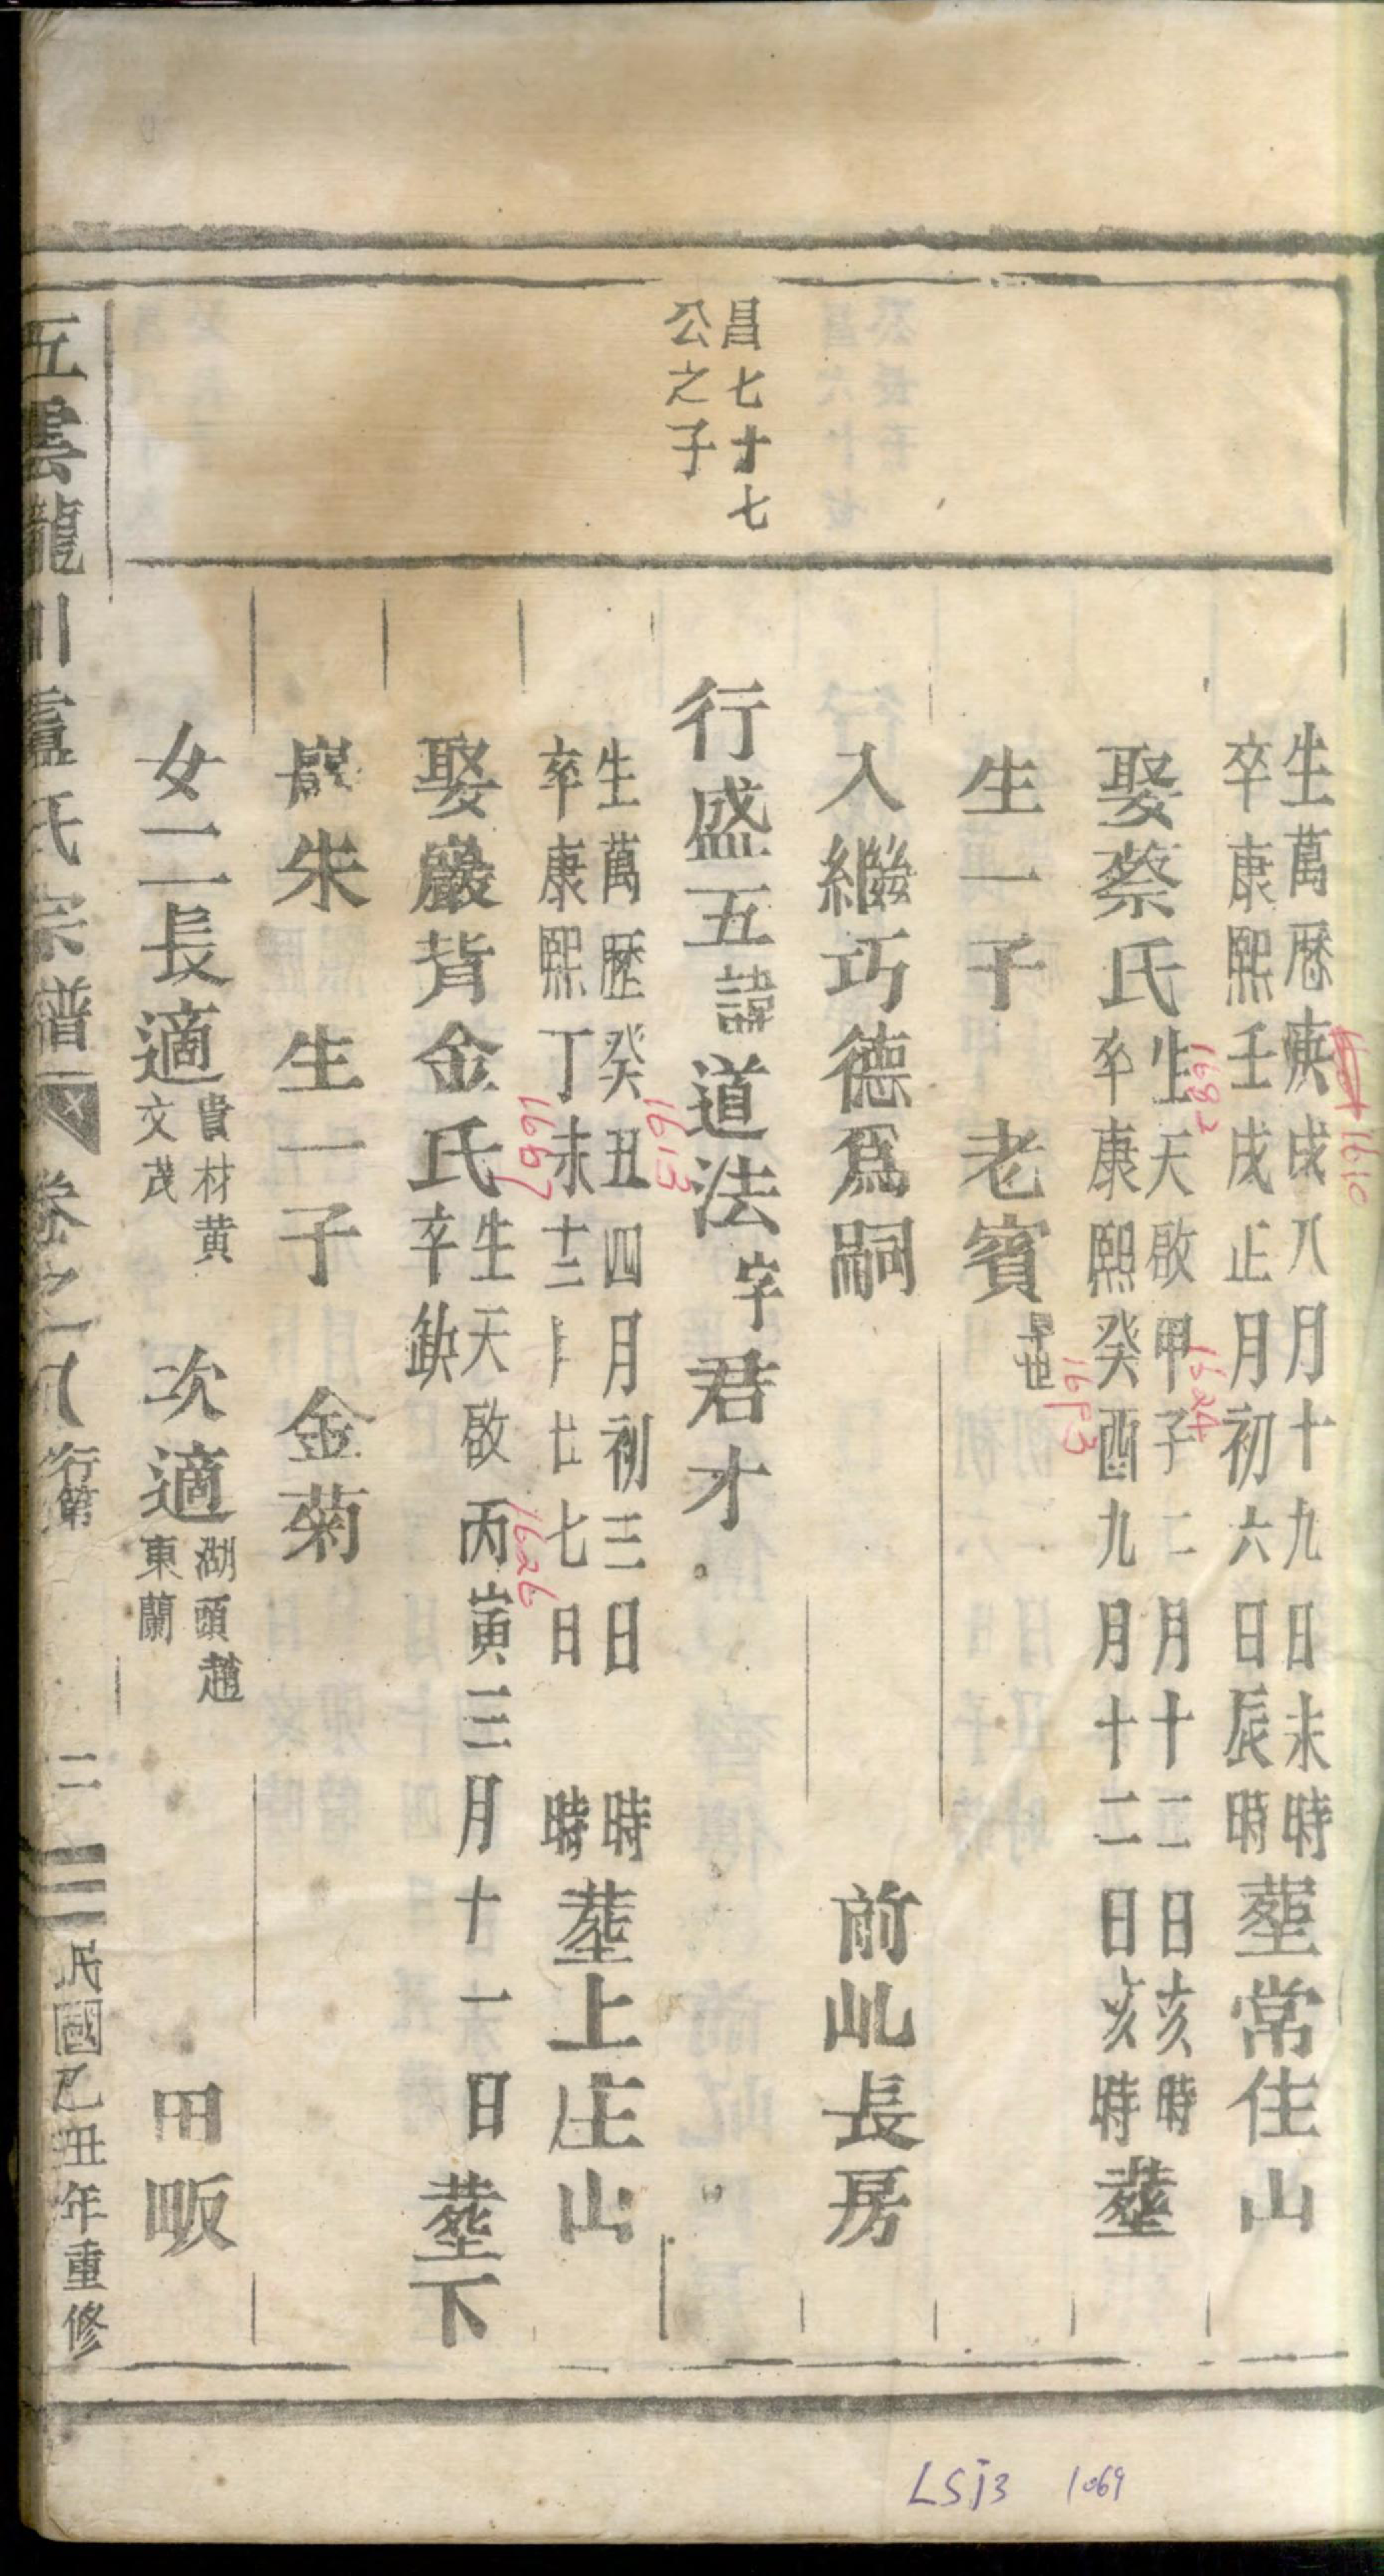 生萬歷庚戌八月十九日未時
卒康熙壬戌正月初六日辰時
塟常住山
1610
1682
娶蔡氏
生天啟甲子二月十三日亥時
卒康熙癸酉九月十二日亥時
塟
1624
1693
生一子 老賓
早世
入繼巧德爲嗣 前乢長房
昌七十七
公之子
行盛五諱道法字君才
生萬歷癸丑四月初三日 時
卒康熙丁未十二月廿七日 時
塟上庄山
1613
1667
娶巖背金氏
生天啟丙寅三月十一日
卒缺
塟下
1626
巖朱 生一子 金菊
女二長適
貴材黄
文茂
次適
湖頭趙
東蘭
田畈
五雲龍川盧氏宗譜 卷之八 行第 二 民國乙丑年重修
LSj3 1069